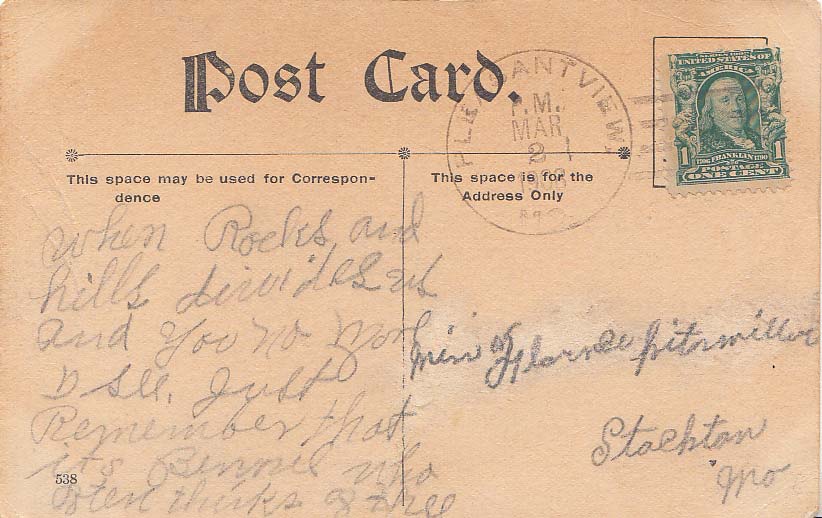 Post Card.
PLEASANTVIEW.
P.M.
MAR
2 1
1908
MO.
SERIES 1902
UNITED STATES OF
AMERICA
1 1706 FRANKLIN 1790 1
POSTAGE
ONE CENT
This space may be used for Correspon-
dence
When Rocks and
hills divides us
And You no more
I See, Just
Remember that
its Bennie who
Oten thinks of thee
538
This space is for the
Address Only
Miss Florence Fitzmiller
Stockton
Mo